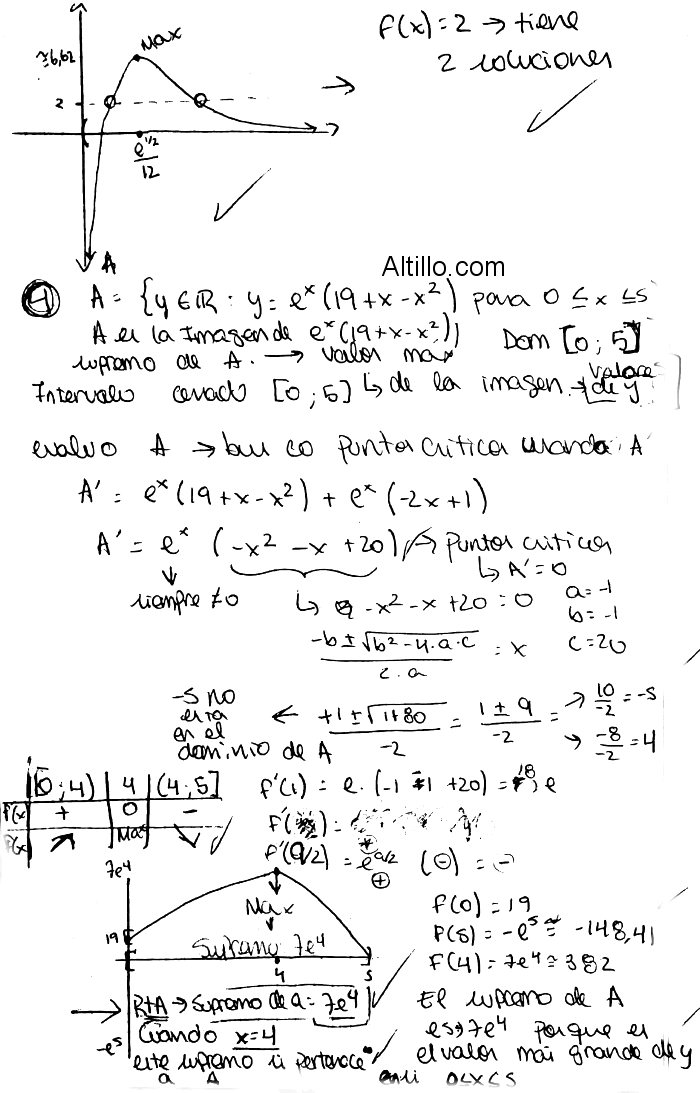 ≈6,62
Max
2
e^1/2
12
A
f(x) = 2 → tiene
2 soluciones
Altillo.com
4 A = {y ∈ ℝ : y = e^x (19 + x - x^2) para 0 ≤ x ≤ 5
A es la Imagen de e^x (19 + x - x^2)} Dom [0 ; 5]
supremo de A. → valor max
Intervalo cerrado [0 ; 5] ↳ de la imagen → de y
valores
evaluo A → bus co puntos criticos usando A'
A' = e^x (19 + x - x^2) + e^x (-2x + 1)
A' = e^x (-x^2 - x + 20) → puntos criticos
↳ A' = 0
siempre ≠ 0
↳ -x^2 - x + 20 = 0
a = -1
b = -1
c = 20
-b ± √b^2 - 4.a.c = x
2.a
-5 no
esta
en el
dominio de A
← +1 ± √1+80 = 1 ± 9 =
-2 -2
→ 10/-2 = -5
→ -8/-2 = 4
[0 ; 4) 4 (4 ; 5]
f'(x) + 0 -
f(x) ↗ Max ↘
f'(1) = e . (-1 -1 +20) = 18 e
f'(9/2) = e^9/2 (-) = -
⊕
7e^4
19
Max
Supremo 7e^4
4
5
-e^5
f(0) = 19
f(5) = -e^5 ≅ -148,41
f(4) = 7e^4 ≅ 382
RTA → Supremo de a = 7e^4
Cuando x = 4
este supremo si pertenece
a A
El supremo de A
es → 7e^4 porque es
el valor más grande de y
en 0≤x≤5